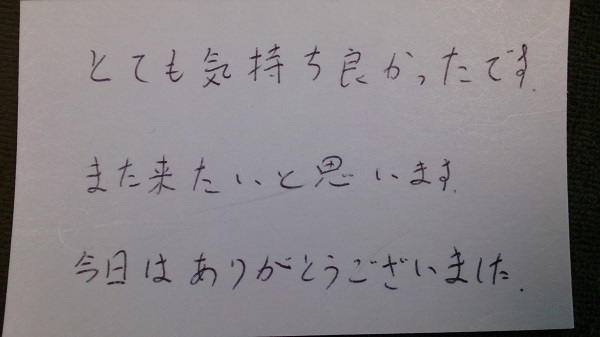 とても気持ち良かったです.
また来たいと思います.
今日はありがとうございました.